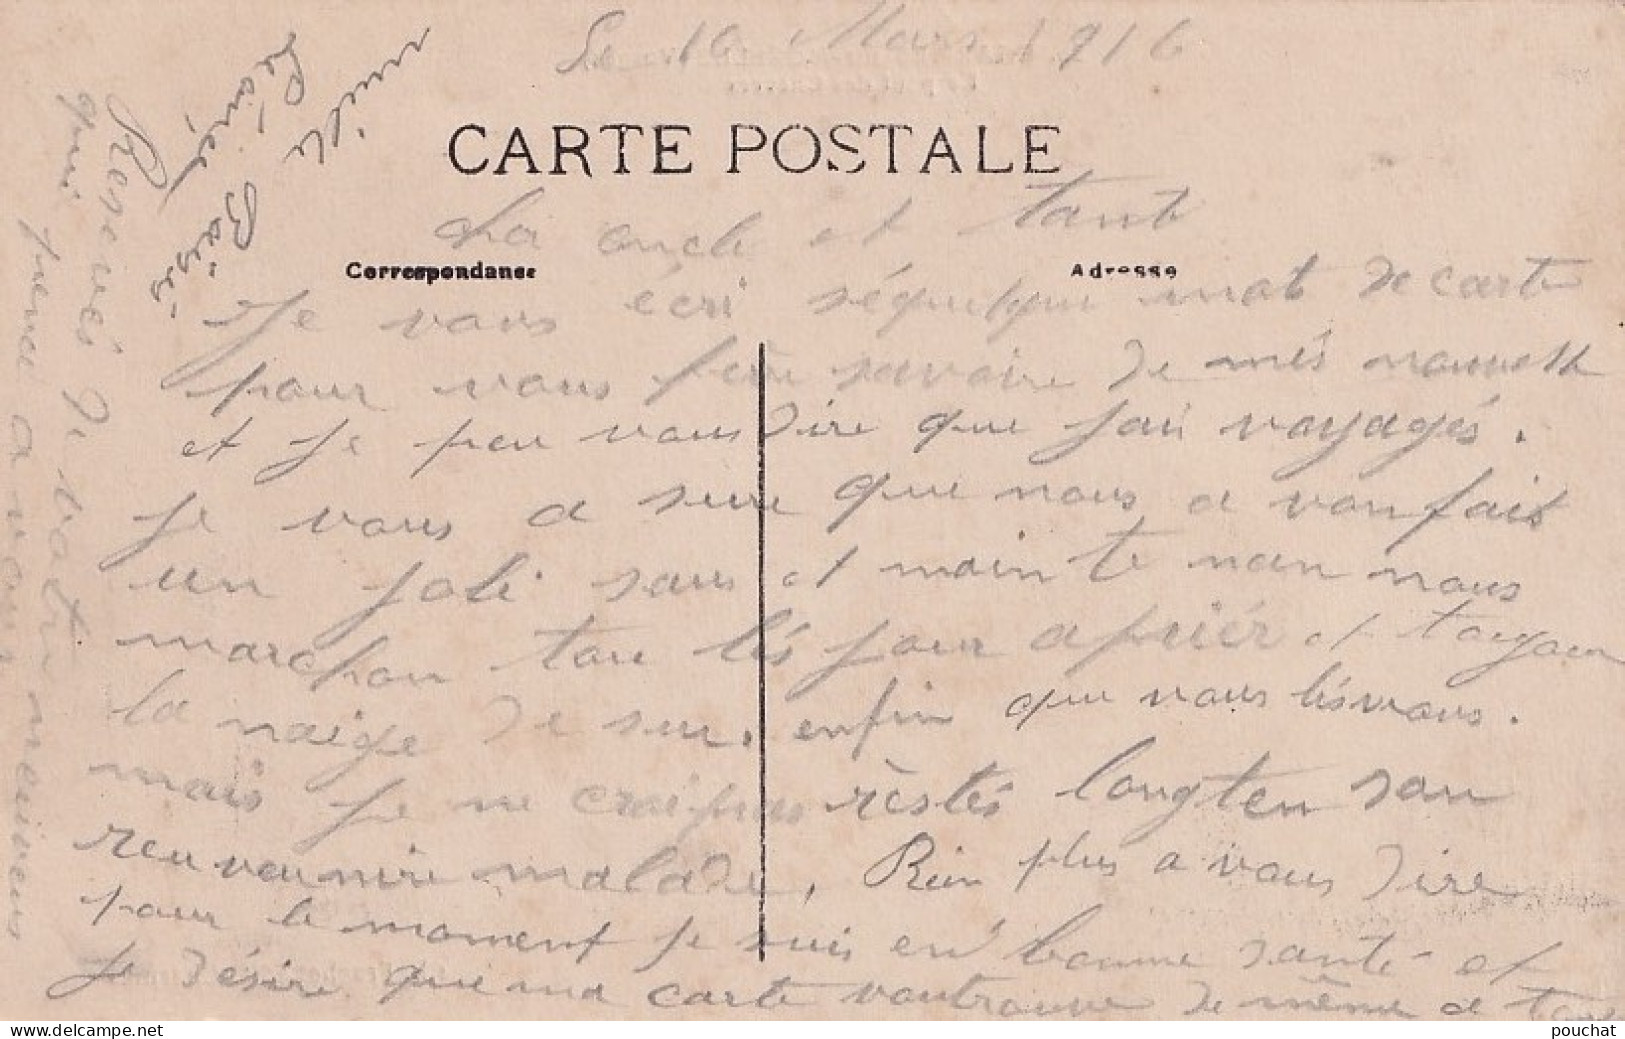 Le 16 Mars 1916
CARTE POSTALE
oncle et tante
Correspondance
Adresse
Je vous écri séquelque mot de carte
pour vous fère savoire de més nouvelle
et je peu vous dire que jai voyagés.
je vous a sure que nous a von fait
un joli saus et main te nan nous
marchon tou lés jour apriér et toujour
la naige de sur. enfin que vous lésvous.
mais je ne craipas réstés longten san
reu venire malade, Rien plus a vous dire
pour le moment je suis en bonne santé et
je désire que ma carte voutrouve de même a tous
Resevés de votre neiveus
qui pense a vous
mille Baisés